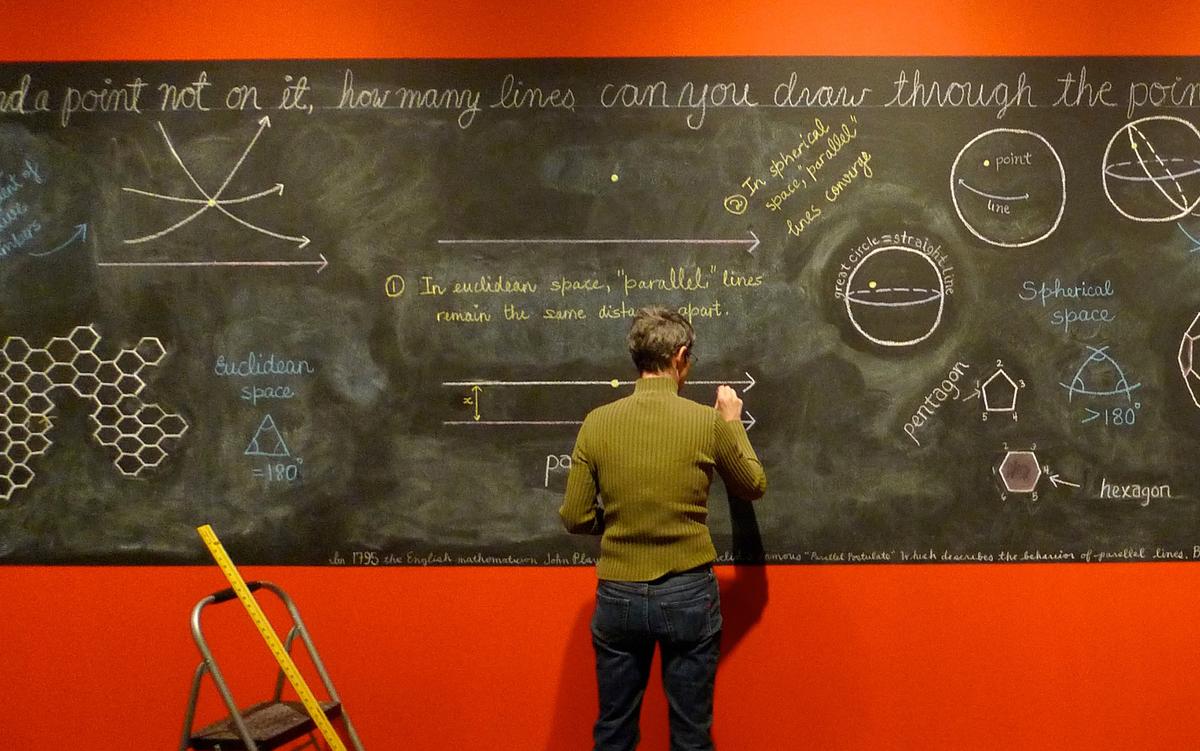 nd a point not on it, how many lines can you draw through the poin
② In spherical
space, "parallel"
lines converge
point
line
great circle = straight line
① In euclidean space, "parallel" lines
remain the same dista apart.
Spherical
space
>180°
Euclidean
space
=180°
x
pa
pentagon
1
2
3
4
5
hexagon
In 1795 the English mathematician John Play famous "Parallel Postulate" which describes the behavior of parallel lines. B